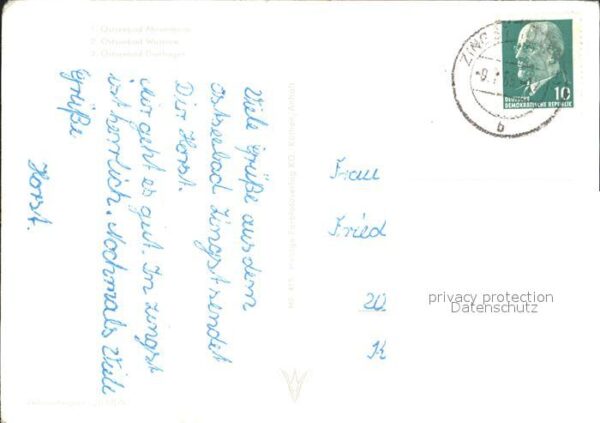 1. Ostseebad Ahrenshoop
2. Ostseebad Wustrow
3. Ostseebad Dierhagen
Viele Grüße aus dem
Ostseebad Zingst sendet
Dir Horst.
Mir geht es gut. In Zingst
ist herrlich. Nochmals Viele
Grüße
Horst.
ZINGST
b
10
DEUTSCHE
DEMOKRATISCHE REPUBLIK
Frau
Fried
20
K
privacy protection
Datenschutz